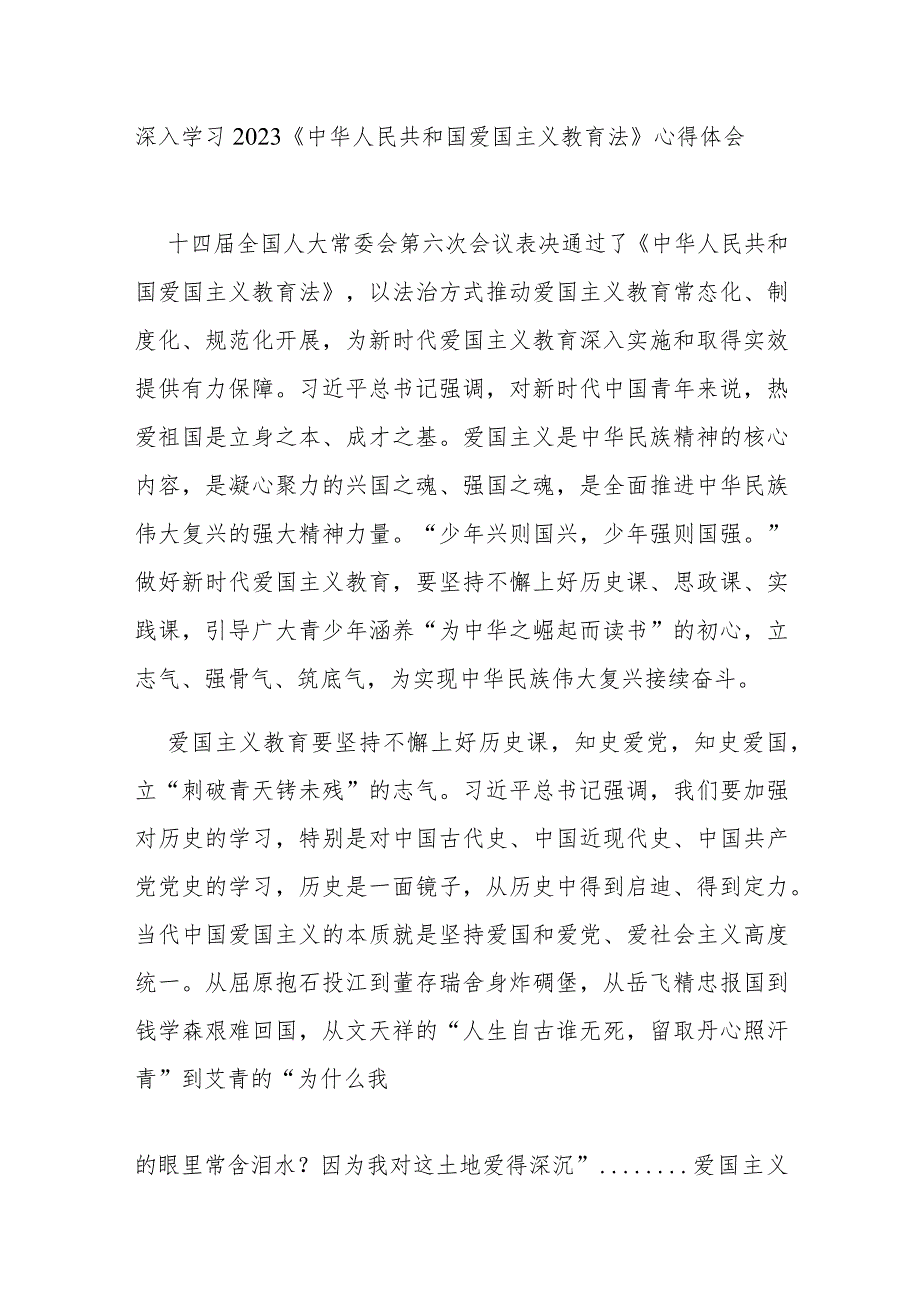 深入学习2023《中华人民共和国爱国主义教育法》心得体会
十四届全国人大常委会第六次会议表决通过了《中华人民共和
国爱国主义教育法》，以法治方式推动爱国主义教育常态化、制
度化、规范化开展，为新时代爱国主义教育深入实施和取得实效
提供有力保障。习近平总书记强调，对新时代中国青年来说，热
爱祖国是立身之本、成才之基。爱国主义是中华民族精神的核心
内容，是凝心聚力的兴国之魂、强国之魂，是全面推进中华民族
伟大复兴的强大精神力量。“少年兴则国兴，少年强则国强。”
做好新时代爱国主义教育，要坚持不懈上好历史课、思政课、实
践课，引导广大青少年涵养“为中华之崛起而读书”的初心，立
志气、强骨气、筑底气，为实现中华民族伟大复兴接续奋斗。
爱国主义教育要坚持不懈上好历史课，知史爱党，知史爱国，
立“刺破青天锷未残”的志气。习近平总书记强调，我们要加强
对历史的学习，特别是对中国古代史、中国近现代史、中国共产
党党史的学习，历史是一面镜子，从历史中得到启迪、得到定力。
当代中国爱国主义的本质就是坚持爱国和爱党、爱社会主义高度
统一。从屈原抱石投江到董存瑞舍身炸碉堡，从岳飞精忠报国到
钱学森艰难回国，从文天祥的“人生自古谁无死，留取丹心照汗
青”到艾青的“为什么我
的眼里常含泪水？因为我对这土地爱得深沉”........爱国主义